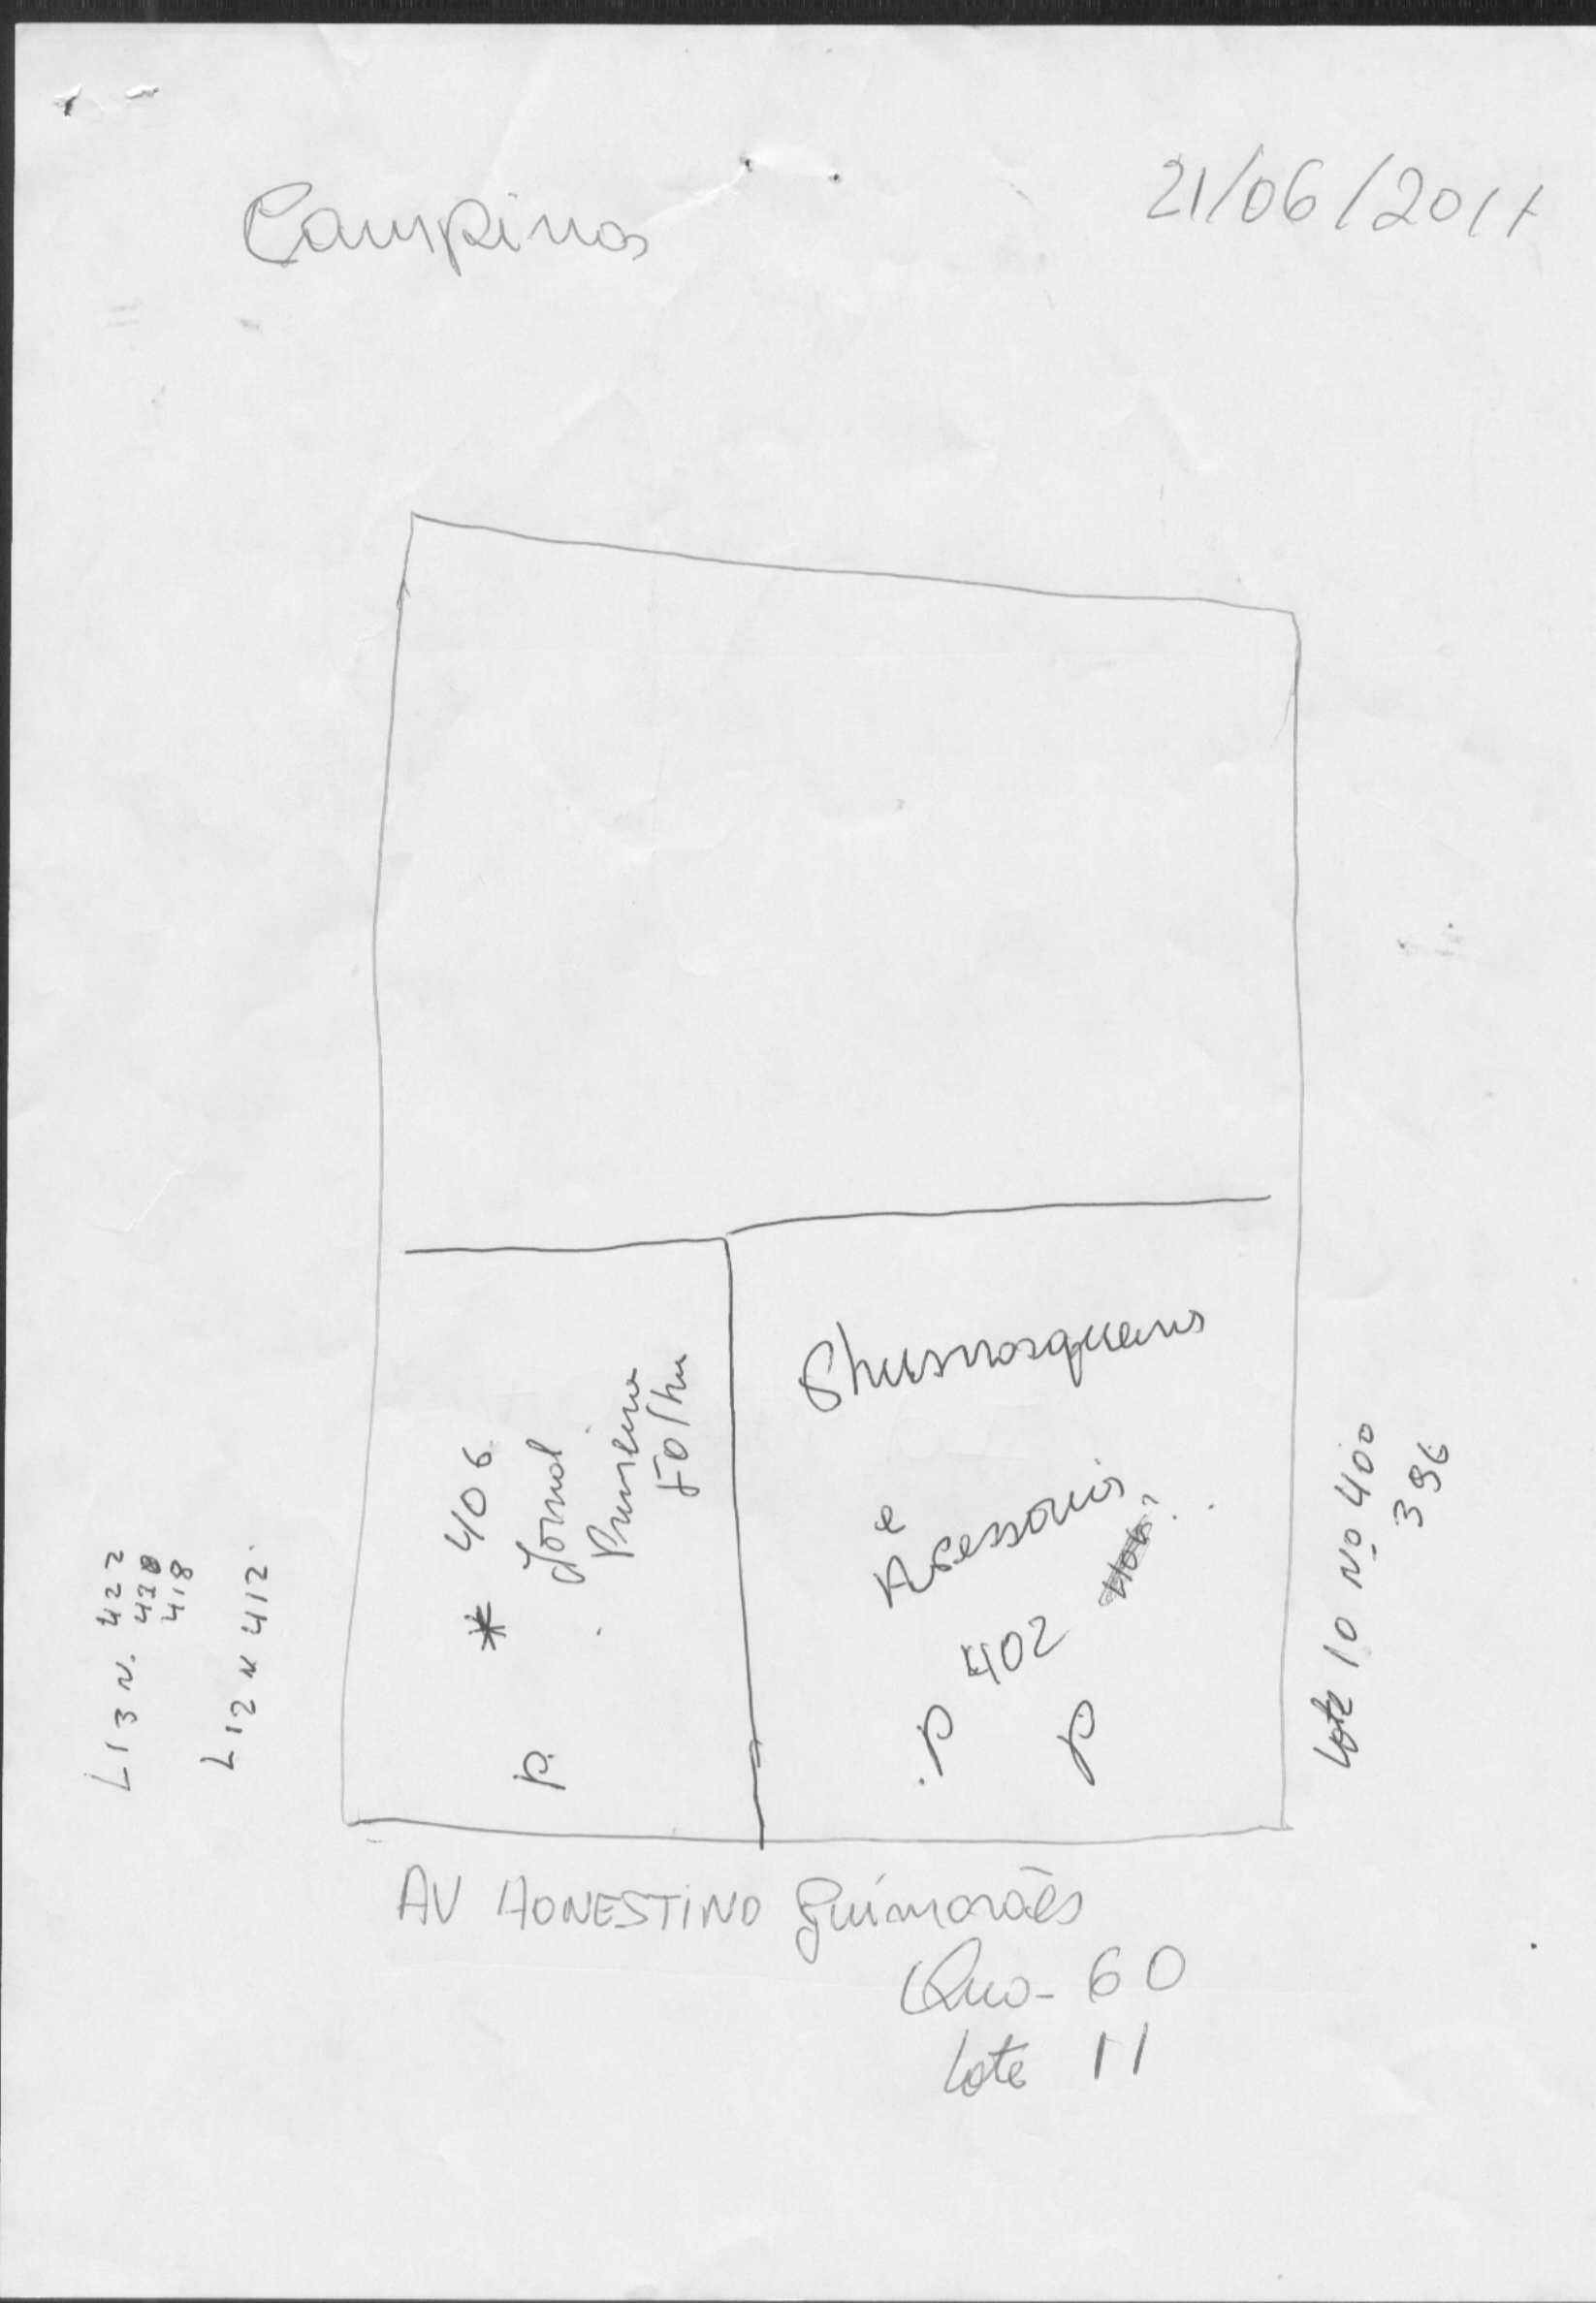 Campinas
21/06/2017
* 406
Jornal
Primeira
Folha
p
e
Acessorios
402
p
p
L13 N. 422
420
418
L12 N 412
Lote 10 Nº 400
396
AV HONESTINO Guimarães
Qua- 60
Lote 11